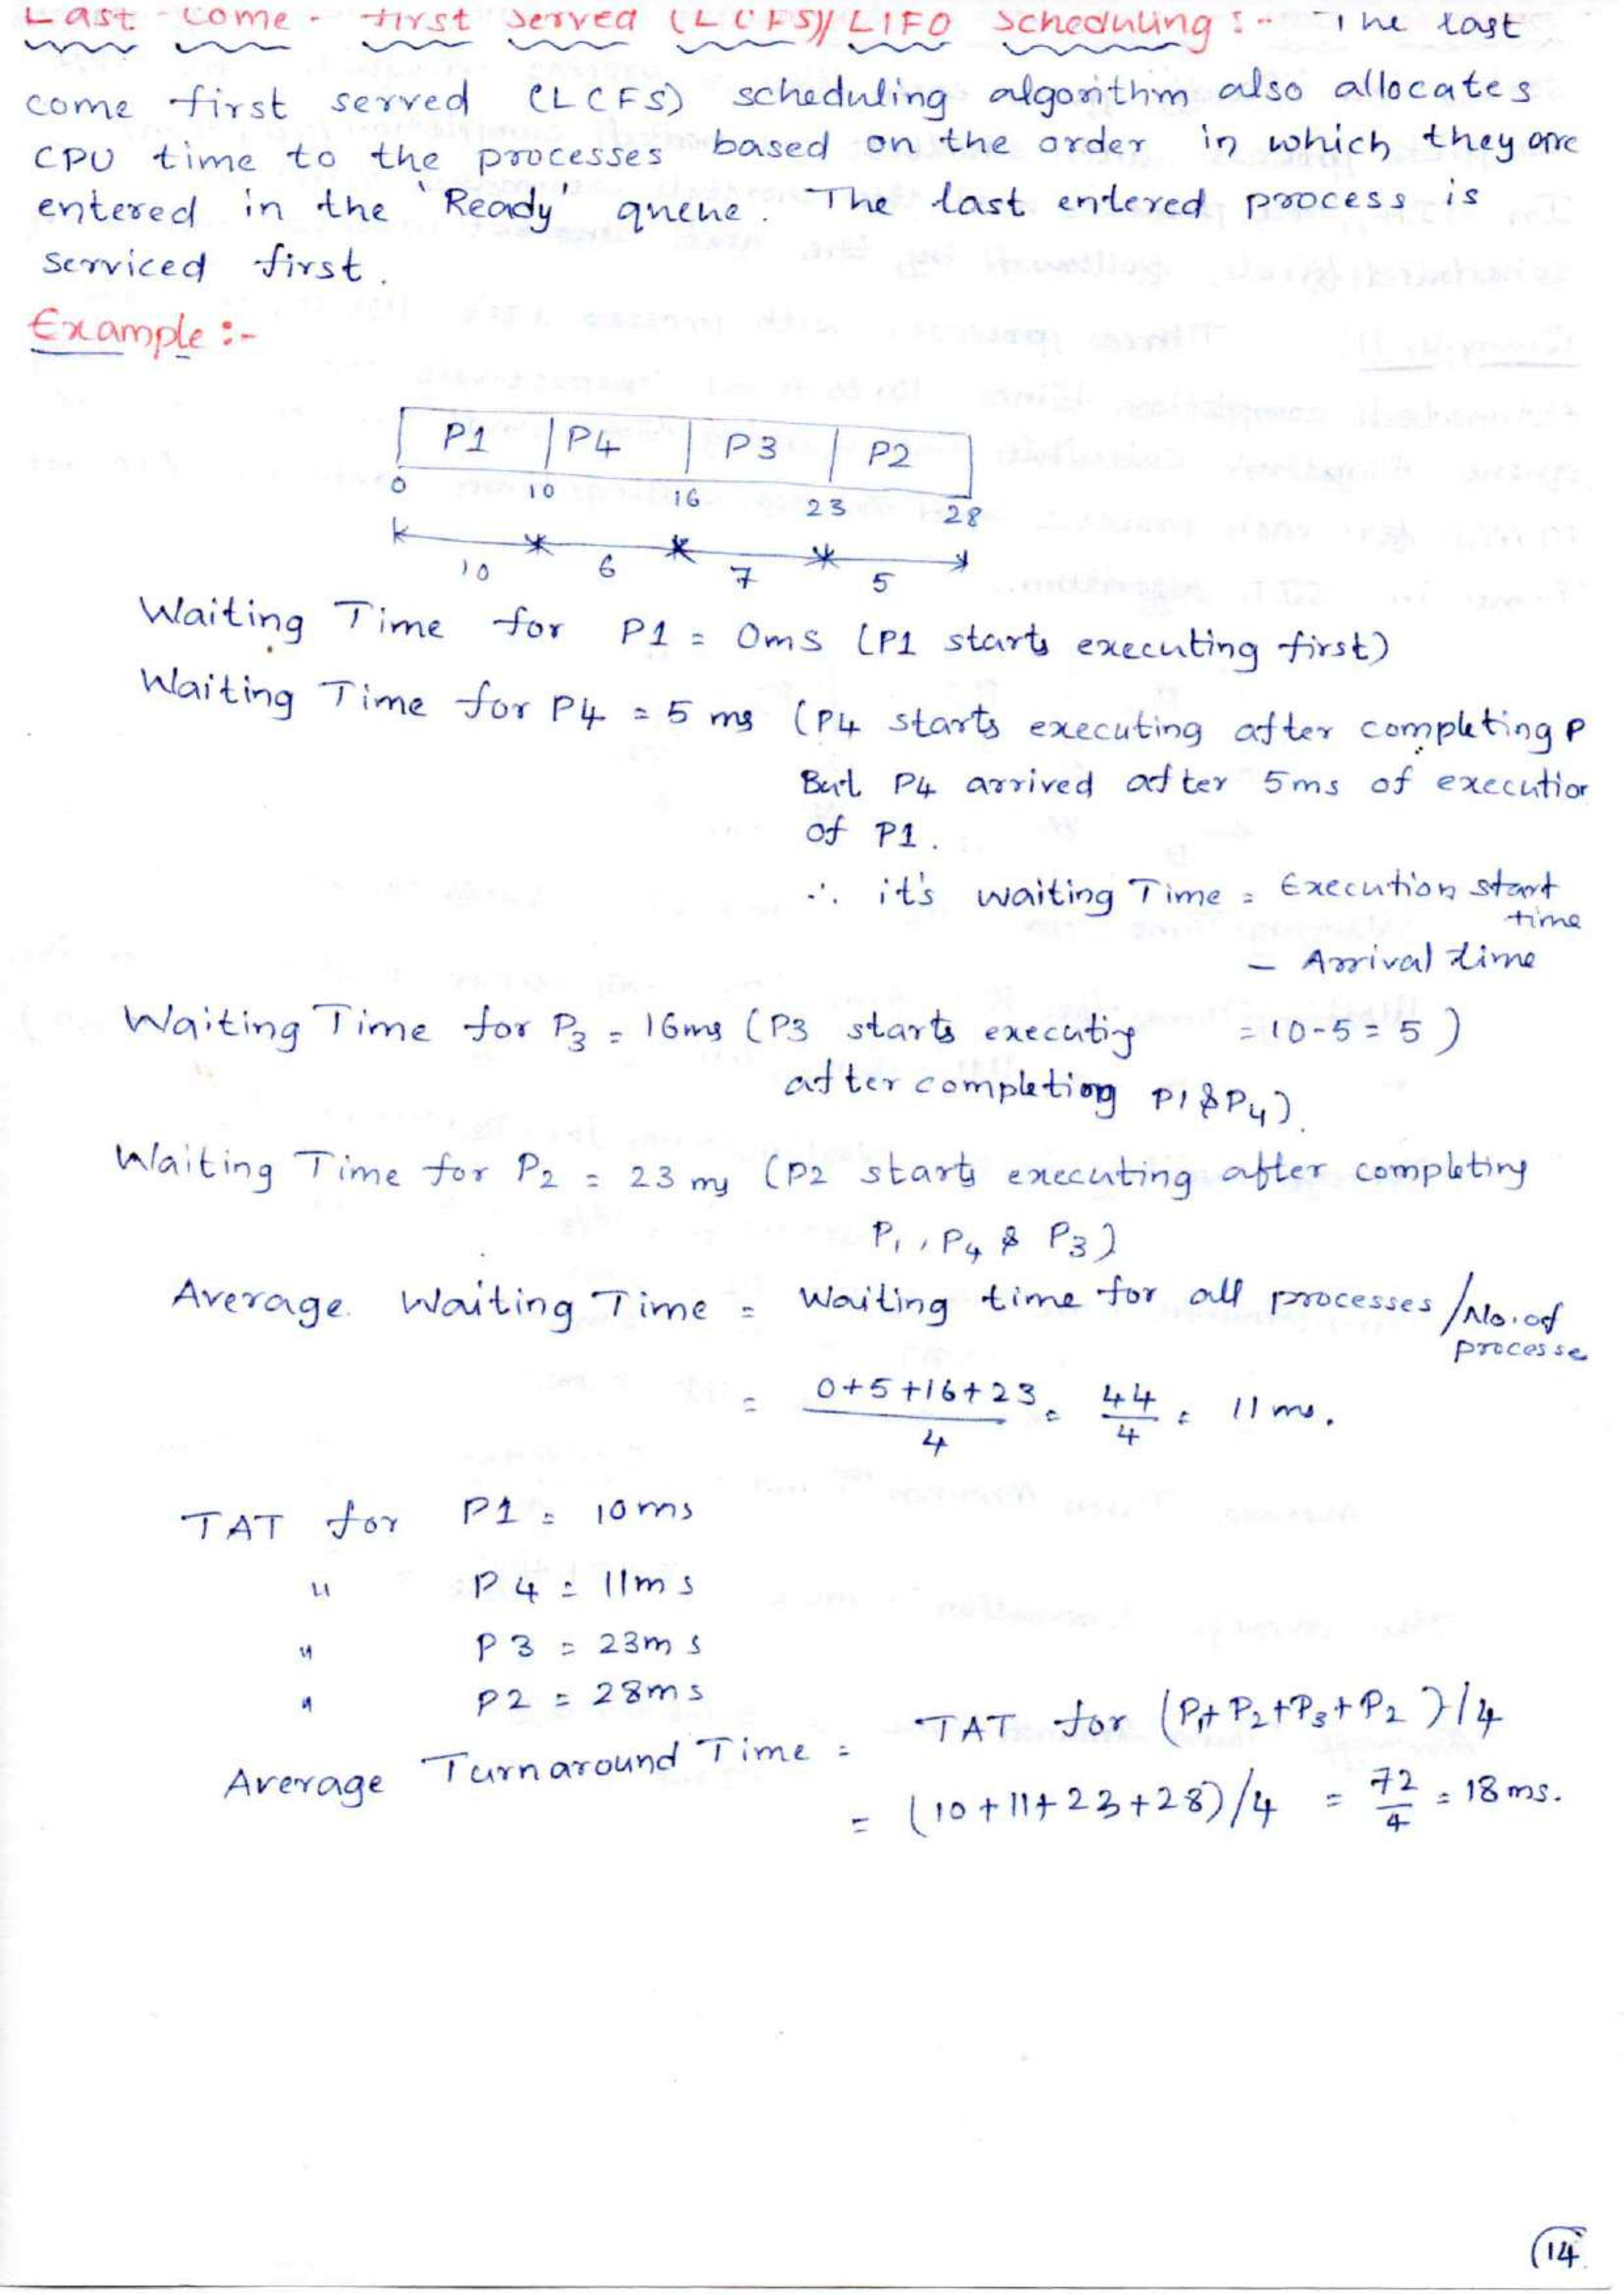 Last - Come - First Served (LCFS)/ LIFO Scheduling :- The last
come first served (LCFS) scheduling algorithm also allocates
CPU time to the processes based on the order in which they are
entered in the 'Ready' queue. The last entered process is
serviced first.
Example :-
P1 P4 P3 P2
0 10 16 23 28
10 6 7 5
Waiting Time for P1 = 0ms (P1 starts executing first)
Waiting Time for P4 = 5 ms (P4 starts executing after completing P
But P4 arrived after 5ms of execution
of P1.
∴ it's waiting Time = Execution start
time
- Arrival time
Waiting Time for P3 = 16ms (P3 starts executing = 10-5 = 5 )
after completing P1 & P4).
Waiting Time for P2 = 23 ms (P2 starts executing after completing
P1, P4 & P3)
Average Waiting Time = Waiting time for all processes /No. of
processe
= 0+5+16+23 / 4 = 44 / 4 = 11 ms.
TAT for P1 = 10ms
" P4 = 11ms
" P3 = 23ms
" P2 = 28ms
Average Turnaround Time = TAT for (P1+P2+P3+P2)/4
= (10+11+23+28)/4 = 72 / 4 = 18ms.
14